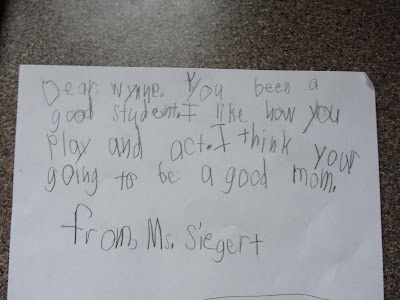 Dear Wynne. You been a
good student. I like how you
play and act. I think your
going to be a good mom.
from, Ms. Siegert